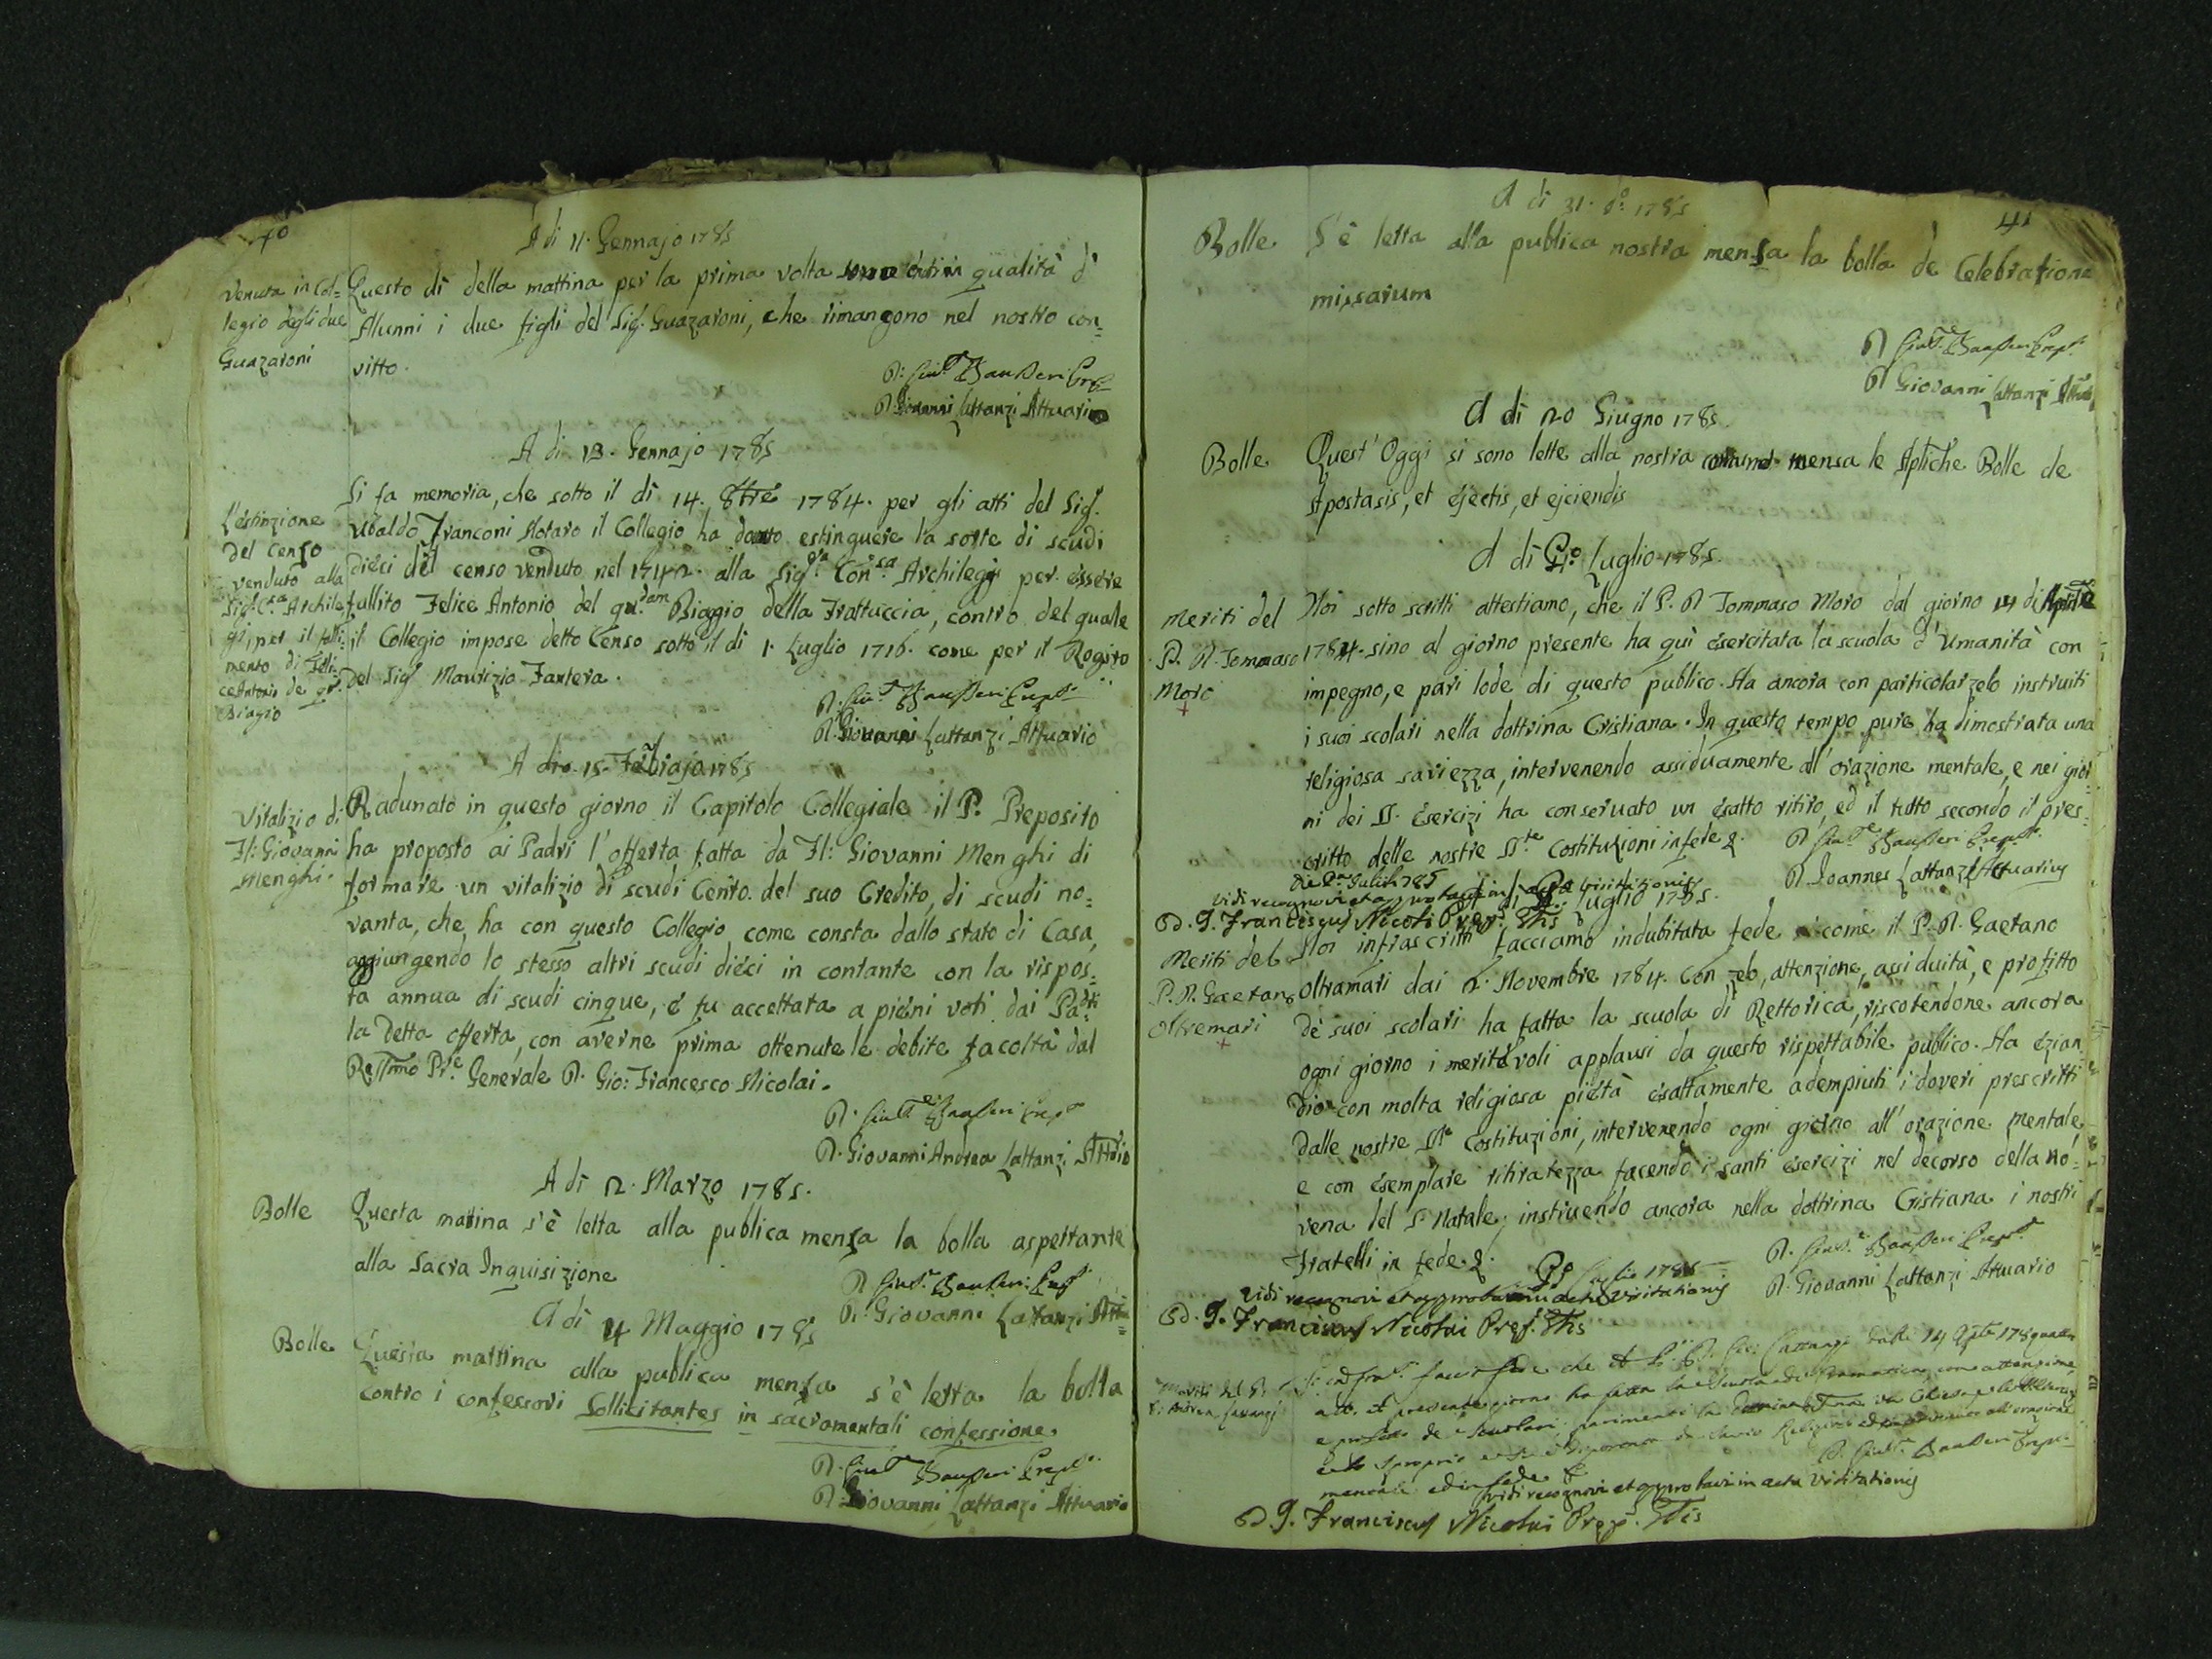 40
A di 11. Gennajo 1785
Venuta in Col=
legio degli due
Guazaroni
Questo di della mattina per la prima volta sono entrati in qualità di
Alunni i due figli del Sig. Guazaroni, che rimangono nel nostro con=
vitto.
D. Giovanni Lattanzi Attuario
A di 13. Gennajo 1785
L'estinzione
del Censo
venduto alla
Sig.ra C.sa Archile
gi, per il falli=
mento di Feli=
ce Antonio de qd.
Biagio
Si fa memoria, che sotto il di 14. 8bre 1784. per gli atti del Sig.
Ubaldo Franconi Notaro il Collegio ha dovuto estinguere la sorte di scudi
dieci del censo venduto nel 1742. alla Sig.ra Con.sa Archilegi per essere
fallito Felice Antonio del qu.dam Biaggio della Frattuccia, contro del quale
il Collegio impose detto Censo sotto il di 1. Luglio 1716. come per il Rogito
del Sig. Maurizio Fantera.
D. Giovanni Lattanzi Attuario
A di 15. Febrajo 1785
Vitalizio di
Fl: Giovanni
Menghi.
Radunato in questo giorno il Capitolo Collegiale il P. Preposito
ha proposto ai Padri l'offerta fatta da Fl: Giovanni Menghi di
formare un vitalizio di scudi Cento. del suo Credito, di scudi no=
vanta, che ha con questo Collegio come consta dallo stato di Casa,
aggiungendo lo stesso altri scudi dieci in contante con la rispos=
ta annua di scudi cinque, e fu accettata a pieni voti dai Padri
la detta offerta, con averne prima ottenute le debite facoltà dal
R͞mo Pre Generale D. Gio: Francesco Nicolai.
D. Giovanni Andrea Lattanzi Att͞rio
A di 2. Marzo 1785.
Bolle
Questa matina s'è letta alla publica mensa la bolla aspettante
alla Sacra Inquisizione
D. Giovanni Lattanzi Att=
A di 4 Maggio 1785
Bolle
Questa mattina alla publica mensa s'è letta la bolla
contro i confessori Sollicitantes in sacramentali confessione.
D. Giovanni Lattanzi Attuario
41
A di 31. do. 1785
Bolle
S'è letta alla publica nostra mensa la bolla de Celebratione
missarum
D Giovanni Lattanzi
A dì 20 Giugno 1785.
Bolle
Quest'Oggi si sono lette alla nostra comune mensa le Apliche Bolle de
Apostasis, et ejectis, et ejciendis
A dì Pº. Luglio 1785.
Meriti del
P. D. Tommaso
Moro
Noi sotto scritti attestiamo, che il P. D Tommaso Moro dal giorno 14 di Aprile
1784. sino al giorno presente ha quì esercitata la scuola d'Umanità con
impegno, e pari lode di questo publico. Ha ancora con particolar zelo instruiti
i suoi scolari nella dottrina Cristiana. In questo tempo pure ha dimostrata una
religiosa saviezza, intervenendo assiduamente all'orazione mentale, e nei gior=
ni dei SS. Esercizi ha conservato un esatto ritiro, ed il tutto secondo il pres=
critto delle nostre S.te Costituzioni in fede &.
D Joannes Lattanzi Attuarius
Die Pa Julii 1785
vidi recognovi et approbavi in acta visitationis
D. J. Franciscus Nicolai Prep. Glis
Luglio 1785.
Meriti del
P. D. Gaetano
Oltremari
Noi infrascritti facciamo indubitata fede come il P. D. Gaetano
Oltramari dai 2. Novembre 1784. con zelo, attenzione, assiduità, e profitto
de suoi scolari ha fatta la scuola di Rettorica, riscotendone ancora
ogni giorno i meritevoli applausi da questo rispettabile publico. Ha ezian
dio con molta religiosa pietà esattamente adempiuti i doveri prescritti
dalle nostre S.te Costituzioni, intervenendo ogni giorno all'orazione mentale
e con esemplare ritiratezza facendo i santi esercizi nel decorso della no=
vena del S. Natale; instruendo ancora nella dottrina Cristiana i nostri
Fratelli in fede &.
D. Giovanni Lattanzi Attuario
Pº Luglio 1785
vidi recognovi et approbavi in acta visitationis
D. J. Franciscus Nicolai Prep. Glis
Meriti del P.
D. Andrea Lattanzi
fede che il P. D. Lattanzi dalli 14
presente giorno ha fatta la Scuola di Grammatica con attenzione,
e profitto de Scolari, parimenti la
mentale ed in fede &
vidi recognovi et approbavi in acta visitationis
D. J. Franciscus Nicolai Prep. Glis